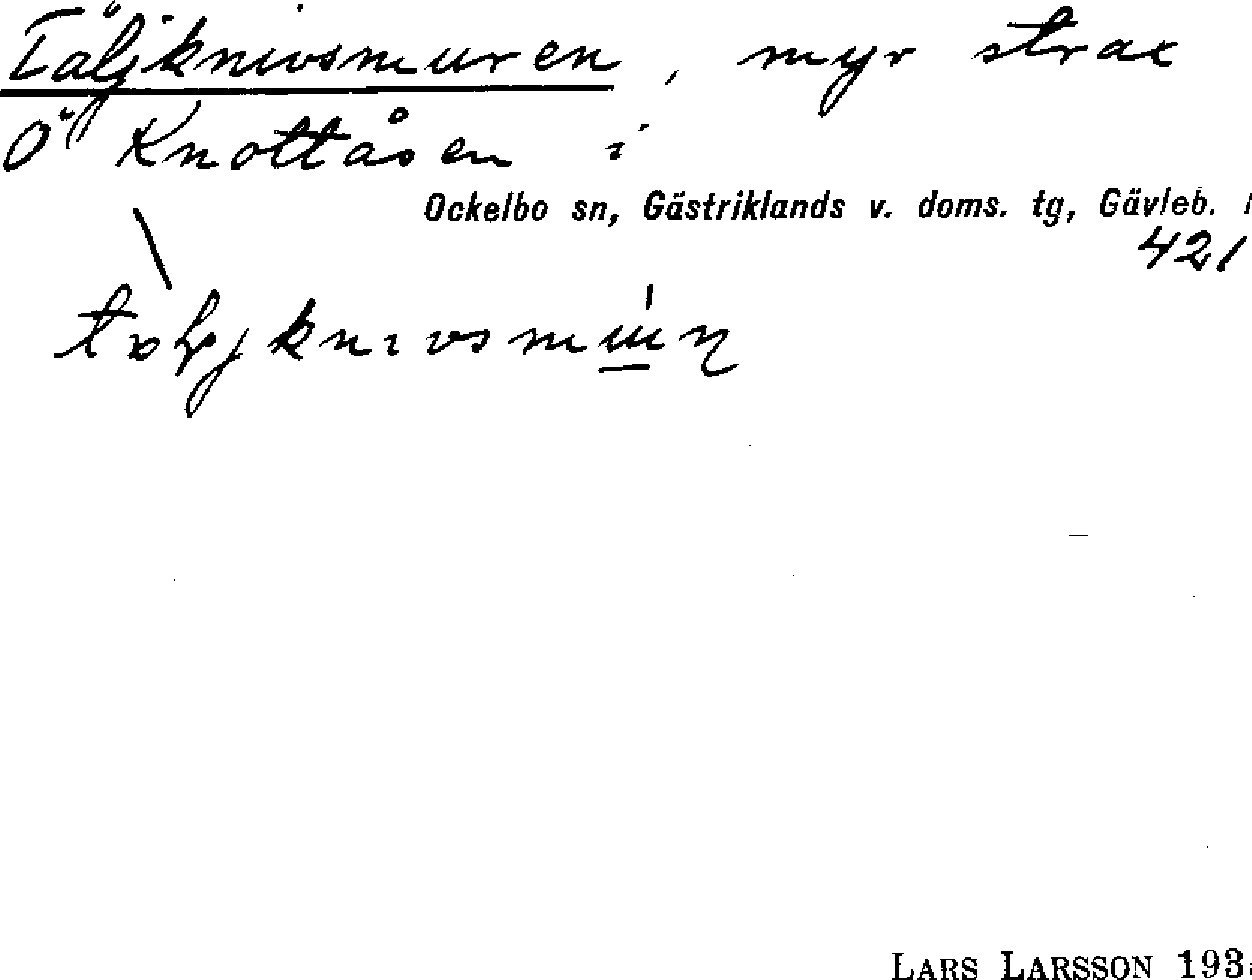 Täljknivsmuren, myr strax
Ö Knottåsen i
Ockelbo sn, Gästriklands v. doms. tg, Gävleb.
421
LARS LARSSON 193